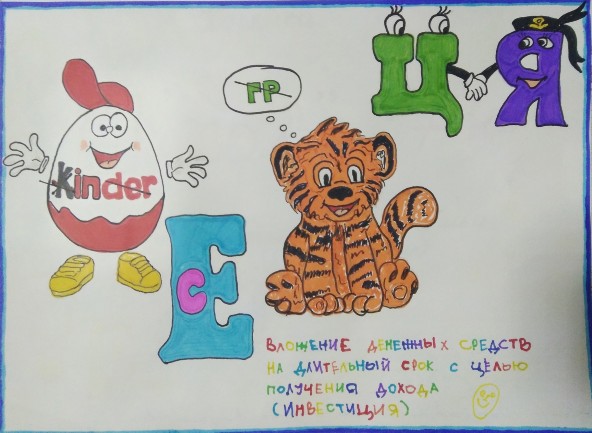 Ц Я
ГР
Kinder
Е
С
ВЛОЖЕНИЕ ДЕНЕЖНЫХ СРЕДСТВ
НА ДЛИТЕЛЬНЫЙ СРОК С ЦЕЛЬЮ
ПОЛУЧЕНИЯ ДОХОДА
(ИНВЕСТИЦИЯ)